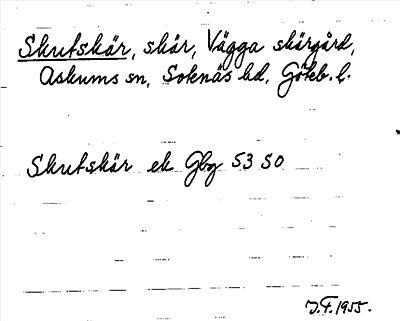 Skutskär, skär, Vägga skärgård,
Askums sn, Sotenäs hd, Göteb. l.
Skutskär ek Gbg 53 50
J.F. 1955.